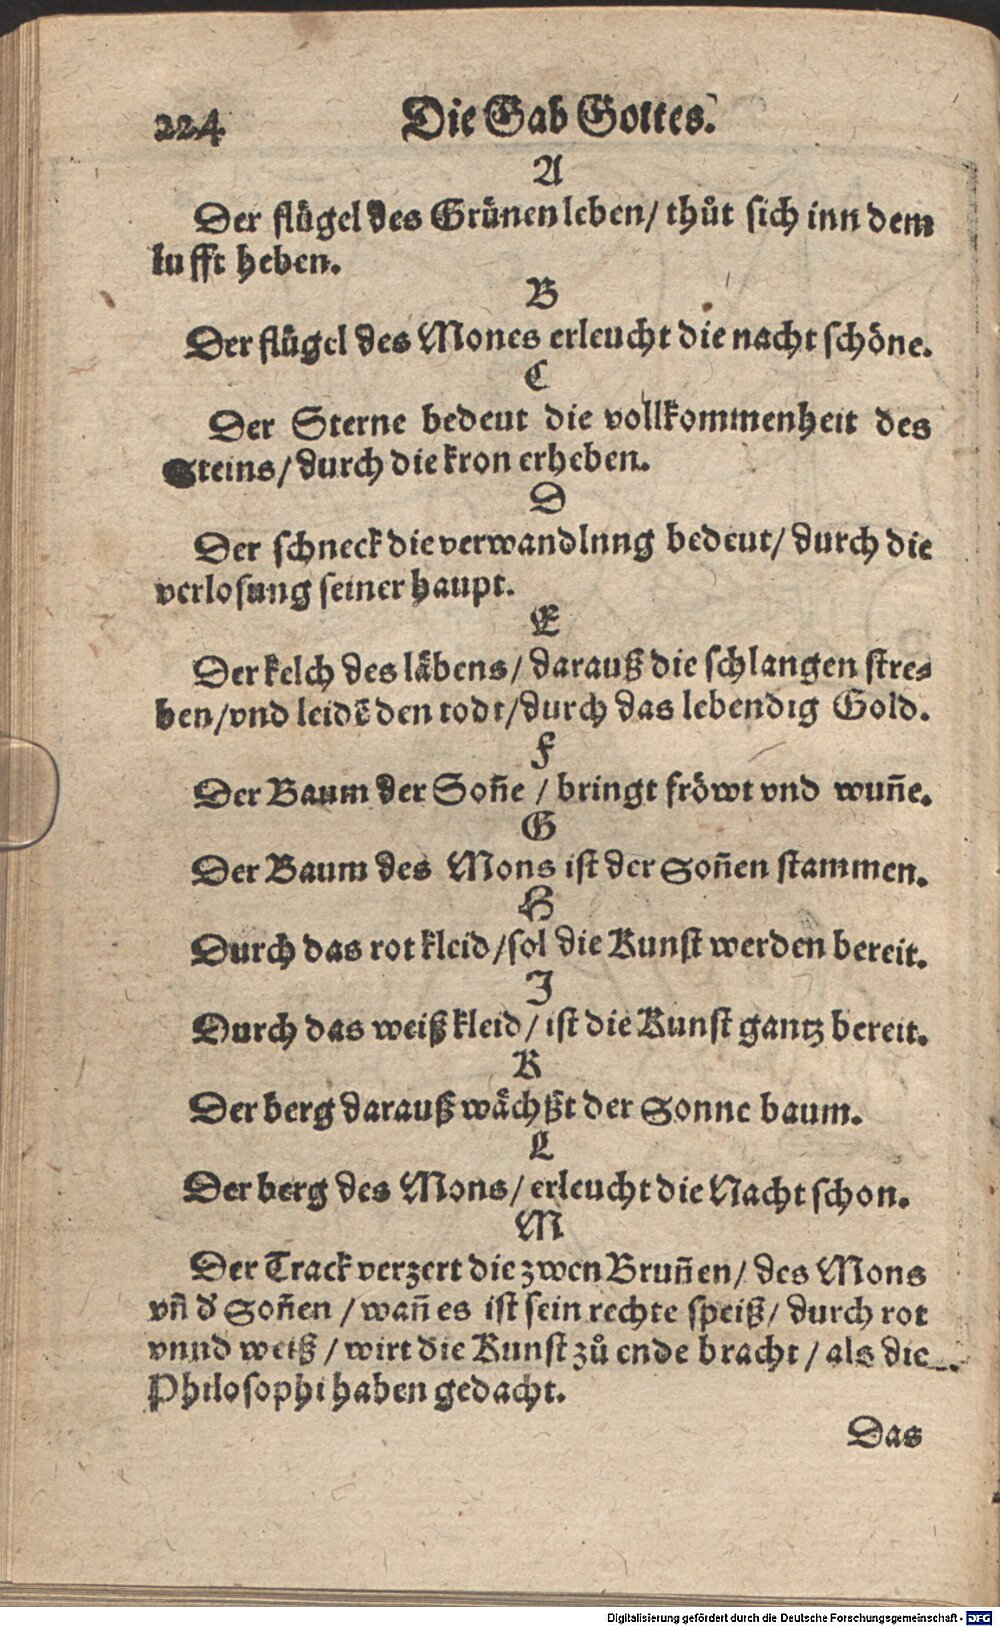 224 Die Gab Gottes.
A
Der flügel des Grünen leben/ thůt sich inn dem
lufft heben.
B
Der flügel des Mones erleucht die nacht schöne.
C
Der Sterne bedeut die vollkommenheit des
Steins/ durch die kron erheben.
D
Der schneck die verwandlnng bedeut/ durch die
verlosung seiner haupt.
E
Der kelch des läbens/ darauß die schlangen stre-
ben/ vnd leidē den todt/ durch das lebendig Gold.
F
Der Baum der Soñe / bringt fröwt vnd wuñe.
G
Der Baum des Mons ist der Soñen stammen.
H
Durch das rot kleid/ sol die Kunst werden bereit.
I
Durch das weiß kleid/ ist die Kunst gantz bereit.
K
Der berg darauß wächßt der Sonne baum.
L
Der berg des Mons/ erleucht die Nacht schon.
M
Der Track verzert die zwen Bruñen/ des Mons
vñ d' Soñen / wañ es ist sein rechte speiß/ durch rot
vnnd weiß / wirt die Kunst zů ende bracht / als die
Philosophi haben gedacht.
Das
Digitalisierung gefördert durch die Deutsche Forschungsgemeinschaft - DFG